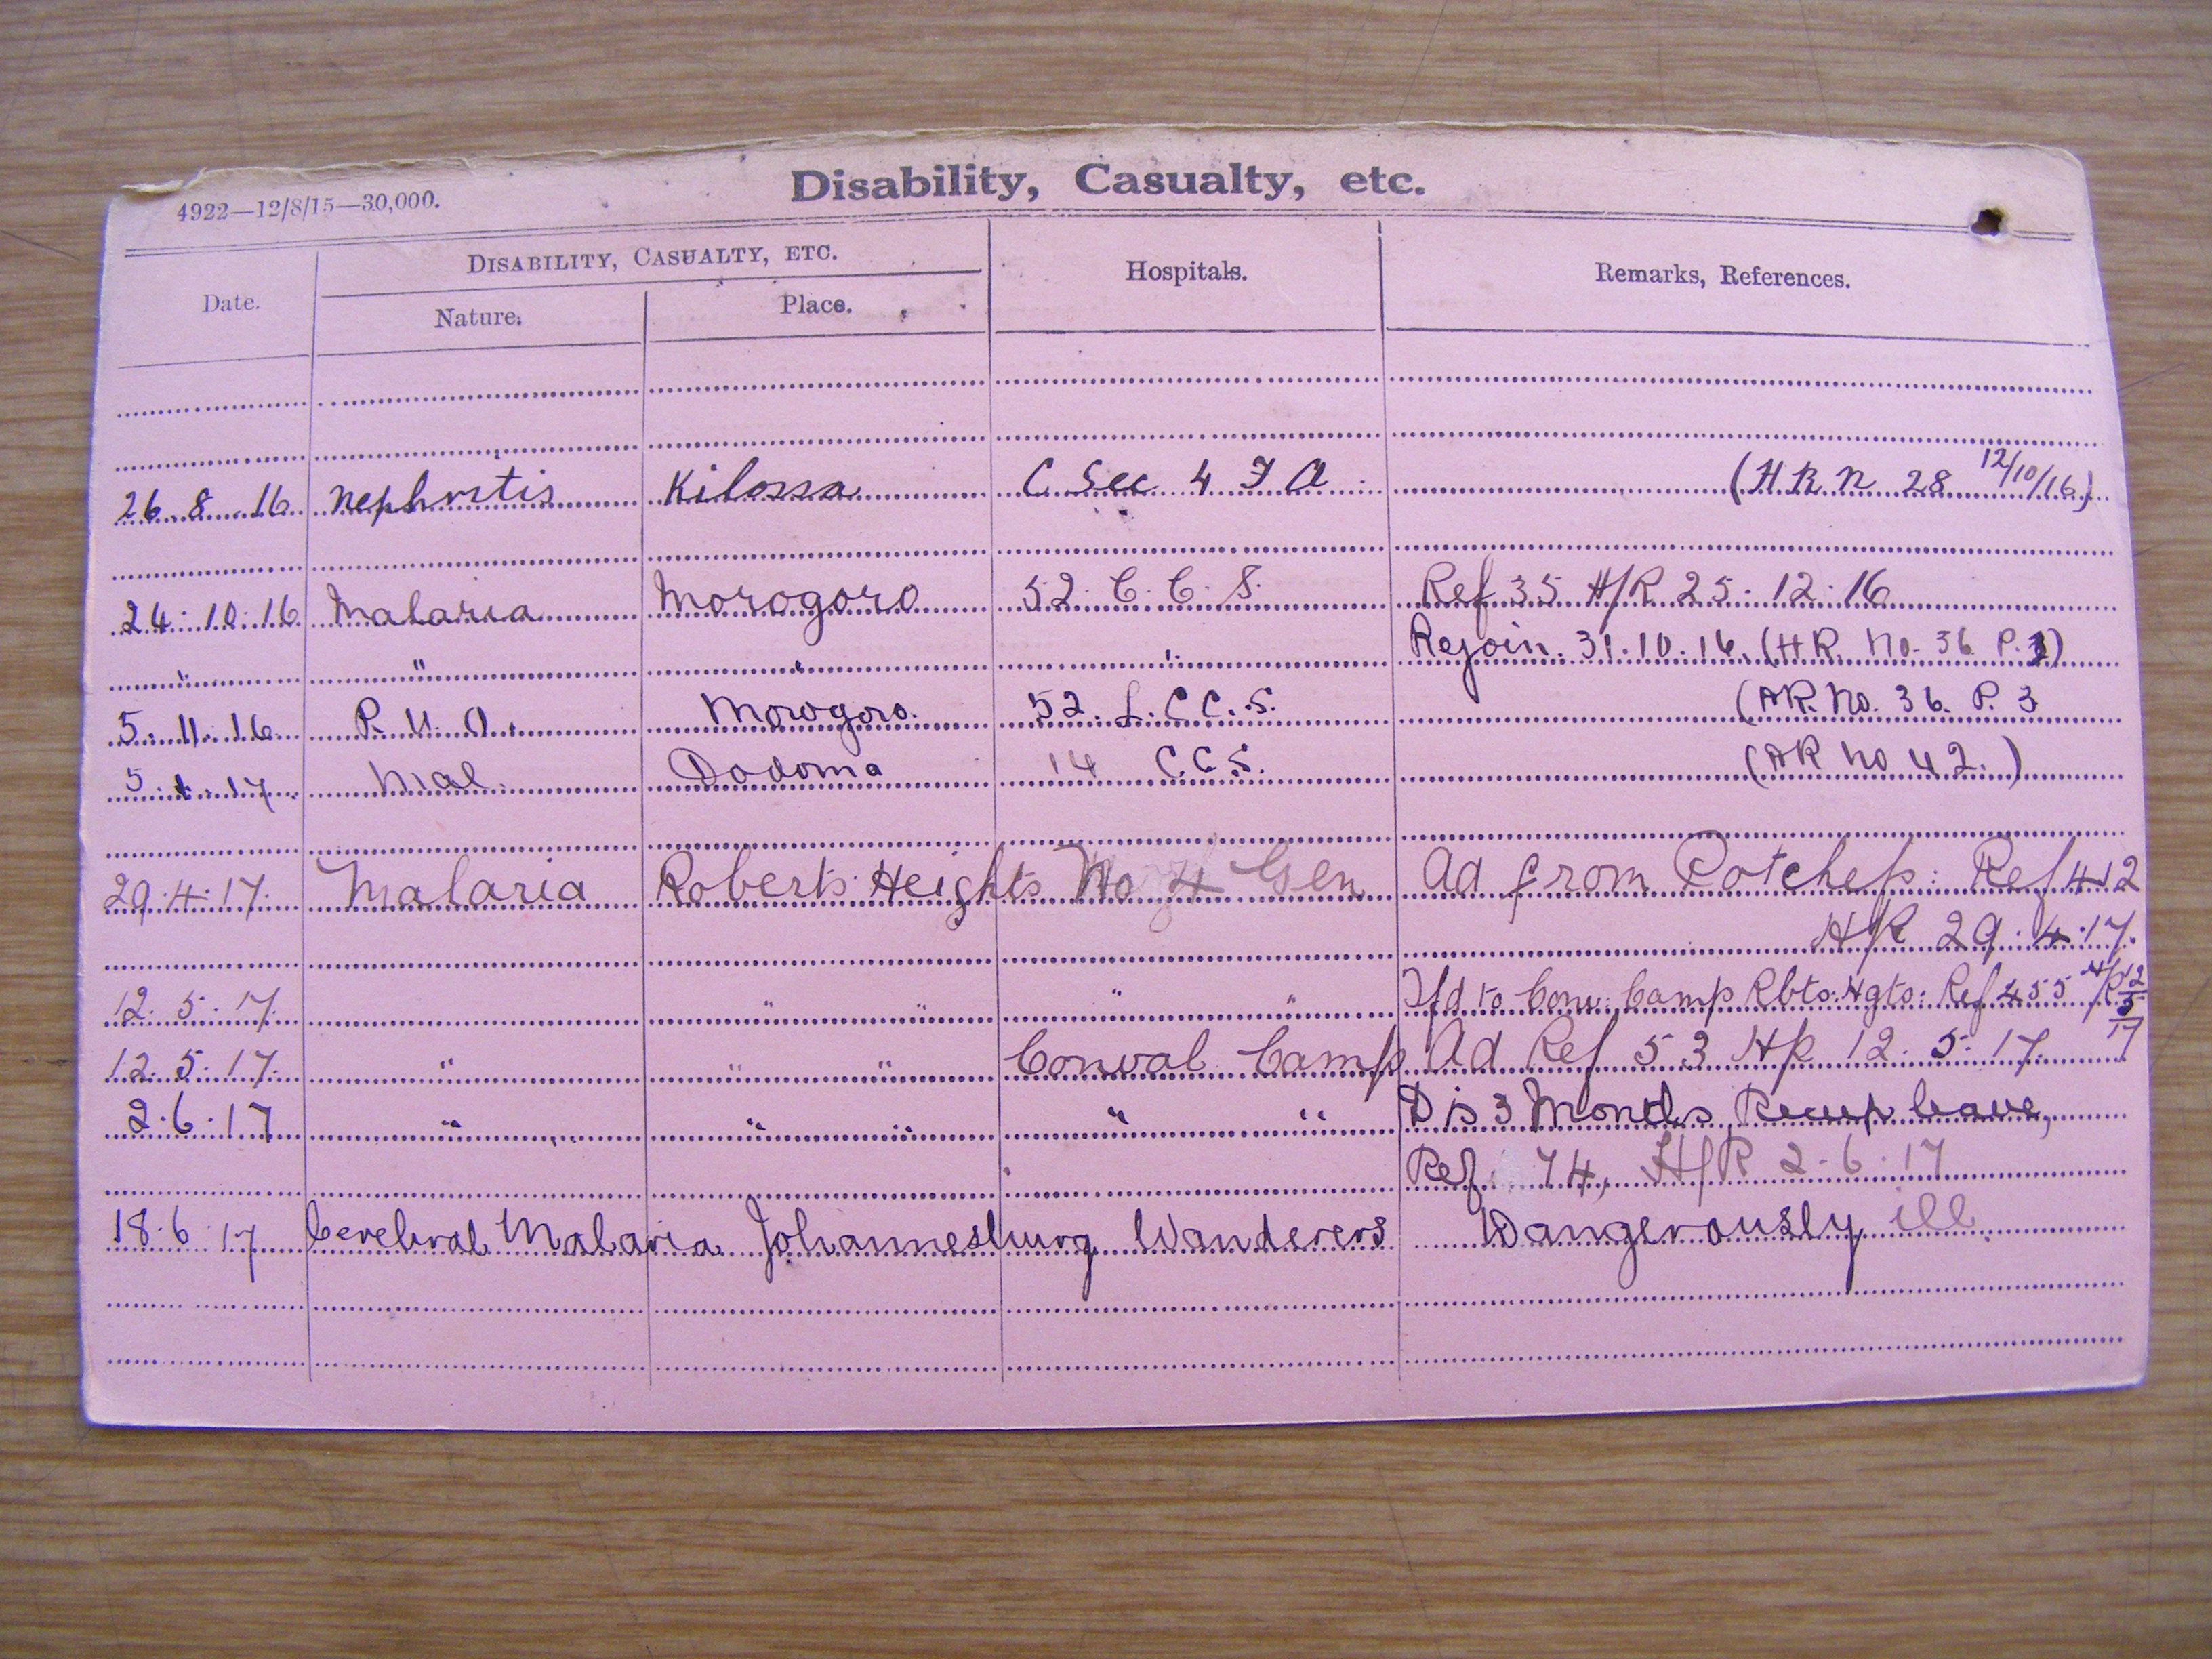 Disability, Casualty, etc.
4922—12/8/15—30,000.
Date. DISABILITY, CASUALTY, ETC. Hospitals. Remarks, References.
Nature. Place.
26.8.16 nephrstis Kilossa C Sec 4 F A (H R N 28 12/10/16)
24.10.16 Malaria Morogoro 52. C. C. S. Ref 35 H/R 25.12.16
" " " " Rejoin. 31.10.16. (HR. No. 36 P. 3)
5.11.16 P. U. O. Morogoro. 52. L. C C. S. (AR. No. 36. P. 3
5.1.17 Mal. Dodoma 14 C.C.S. (AR No 42.)
29.4.17. Malaria Roberts Heights No 4 Gen Ad from Potchefs: Ref 412
H/R 29.4.17.
12.5.17. " " " " Tfd to Conv: Camp Rbts: Hgts: Ref 455 H/R 12/5/17
12.5.17. " " " Conval Camp Ad Ref 53 H/R 12.5.17.
2.6.17 " " " " " Dis 3 Months Recup leave,
Ref 74, H/R 2.6.17
18.6.17 Cerebral Malaria Johannesburg Wanderers Dangerously ill